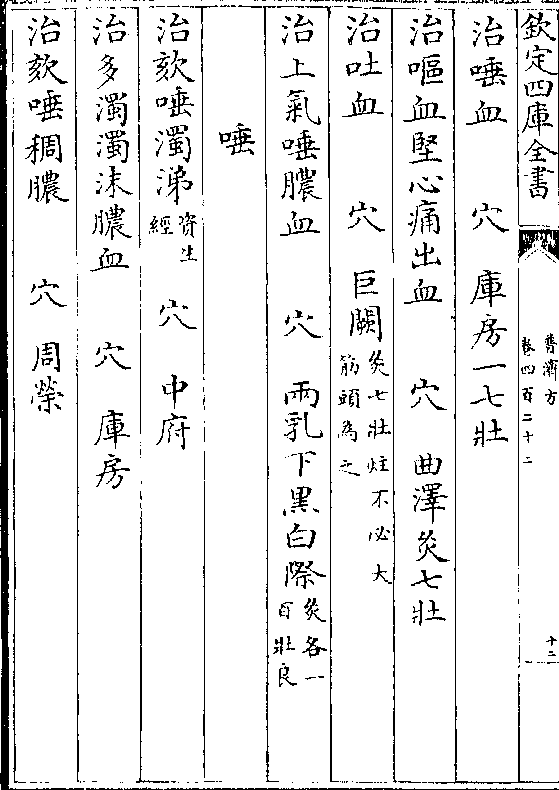 欽定四庫全書
普濟方
卷四百二十二
十二
治唾血　穴　庫房一七壯
治嘔血堅心痛出血　穴　曲澤灸七壯
治吐血　穴　巨闕灸七壯炷不必大筋頭為之
治上氣唾膿血　穴　兩乳下黑白際灸各一百壯良
唾
治欬唾濁涕資生經　穴　中府
治多濁濁沫膿血　穴　庫房
治欬唾稠膿　穴　周榮